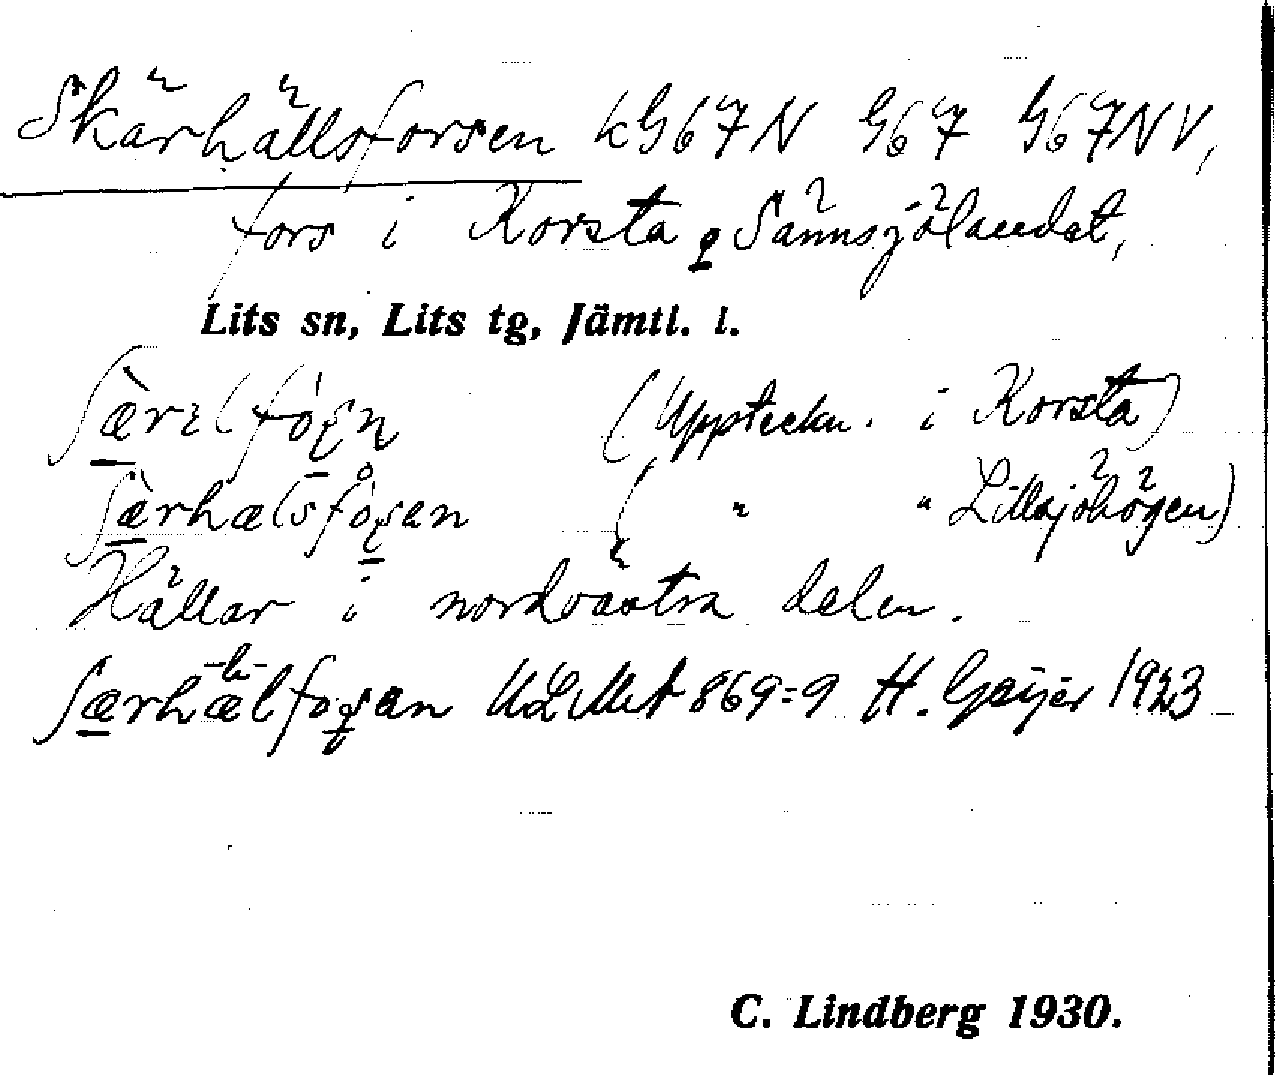 Skärhällsforsen kG67N G67 G67NV,
fors i Korsta o Sännsjölandet,
Lits sn, Lits tg, Jämtl. l.
(Uppteckn. i Korsta)
( " " Lillsjöhögen)
Hällar i nordvästra delen.
ULMA 869:9 H. Geijer 1923
C. Lindberg 1930.